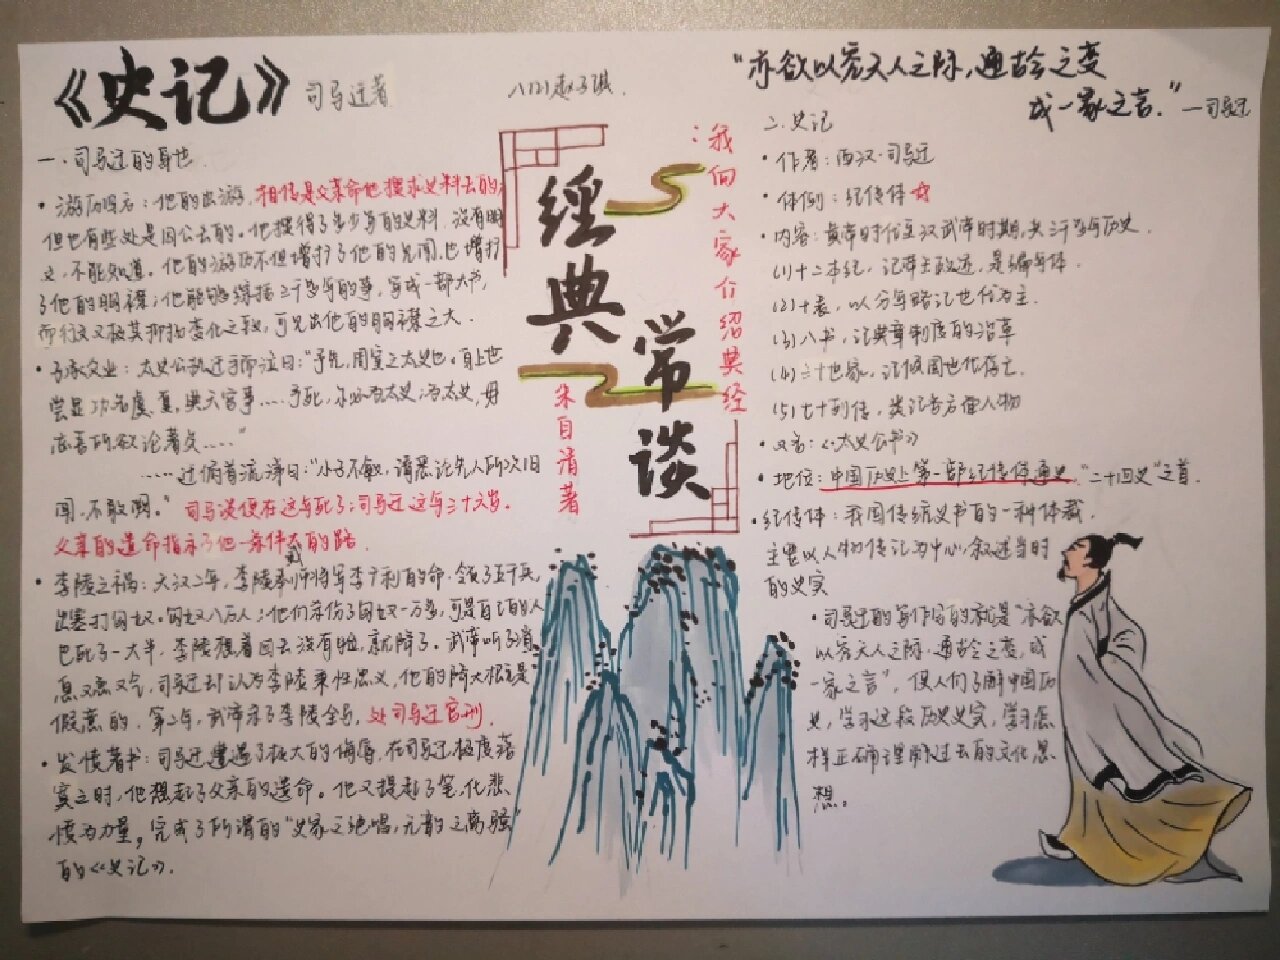 《史记》司马迁著
八(2)赵子琪.
"亦欲以究天人之际，通古今之变
成一家之言."—司马迁
一.司马迁的身世
• 游历四方：他的出游，相传是父亲命他搜求史料去的；
但也有些处是因公去的。他搜得了多少写的史料，没有明
文，不能知道。他的游历不但增扩了他的见闻，也增扩
了他的胸襟；他能够综括三千多年的事，写成一部大书，
而行文又极其抑扬变化之致，可见出他的胸襟之大.
• 子承父业：太史公执迁手而泣曰："予先，周室之太史也。自上世
尝显功名虞夏，典天官事……予死，尔必为太史；为太史，毋
忘吾所欲论著矣……"
……迁俯首流涕曰："小子不敏，请悉论先人所次旧
闻，不敢阙。"司马谈便在这年死了；司马迁这年三十六岁。
父亲的遗命指示了他一条伟大的路.
• 李陵之祸：天汉二年，李陵奉贰师将军李广利的命，领了五千兵
出塞打匈奴。匈奴八万人；他们杀伤了匈奴一万多，可是自己的人
已死了一大半，李陵想着回去没有脸，就降了。武帝听了消
息又急又气，司马迁却认为李陵秉性忠义，他的降大概是
假意的. 第二年，武帝杀了李陵全家，处司马迁宫刑.
• 发愤著书：司马迁遭遇了极大的侮辱，在司马迁极度落
寞之时，他想起了父亲的遗命。他又提起了笔，化悲
愤为力量，完成了所谓的"史家之绝唱，无韵之离骚"
的《史记》.
经典常谈
朱自清著
：我向大家介绍典经
二.史记
• 作者：西汉·司马迁
• 体例：纪传体☆
• 内容：黄帝时代至汉武帝时期，共三千多年历史.
(1)十二本纪，记帝王政迹，是编年体.
(2)十表，以分年略记世代为主.
(3)八书，记典章制度的沿革
(4)三十世家，记侯国世代存亡.
(5)七十列传，类记各方面人物
• 又名：《太史公书》
• 地位：中国历史上第一部纪传体通史."二十四史"之首.
• 纪传体：我国传统史书的一种体裁.
主要以人物传记为中心，叙述当时
的史实
• 司马迁的写作目的就是"亦欲
以究天人之际，通古今之变，成
一家之言"，使人们了解中国历
史，学习这段历史史实，学习怎
样正确理解过去的文化思
想.